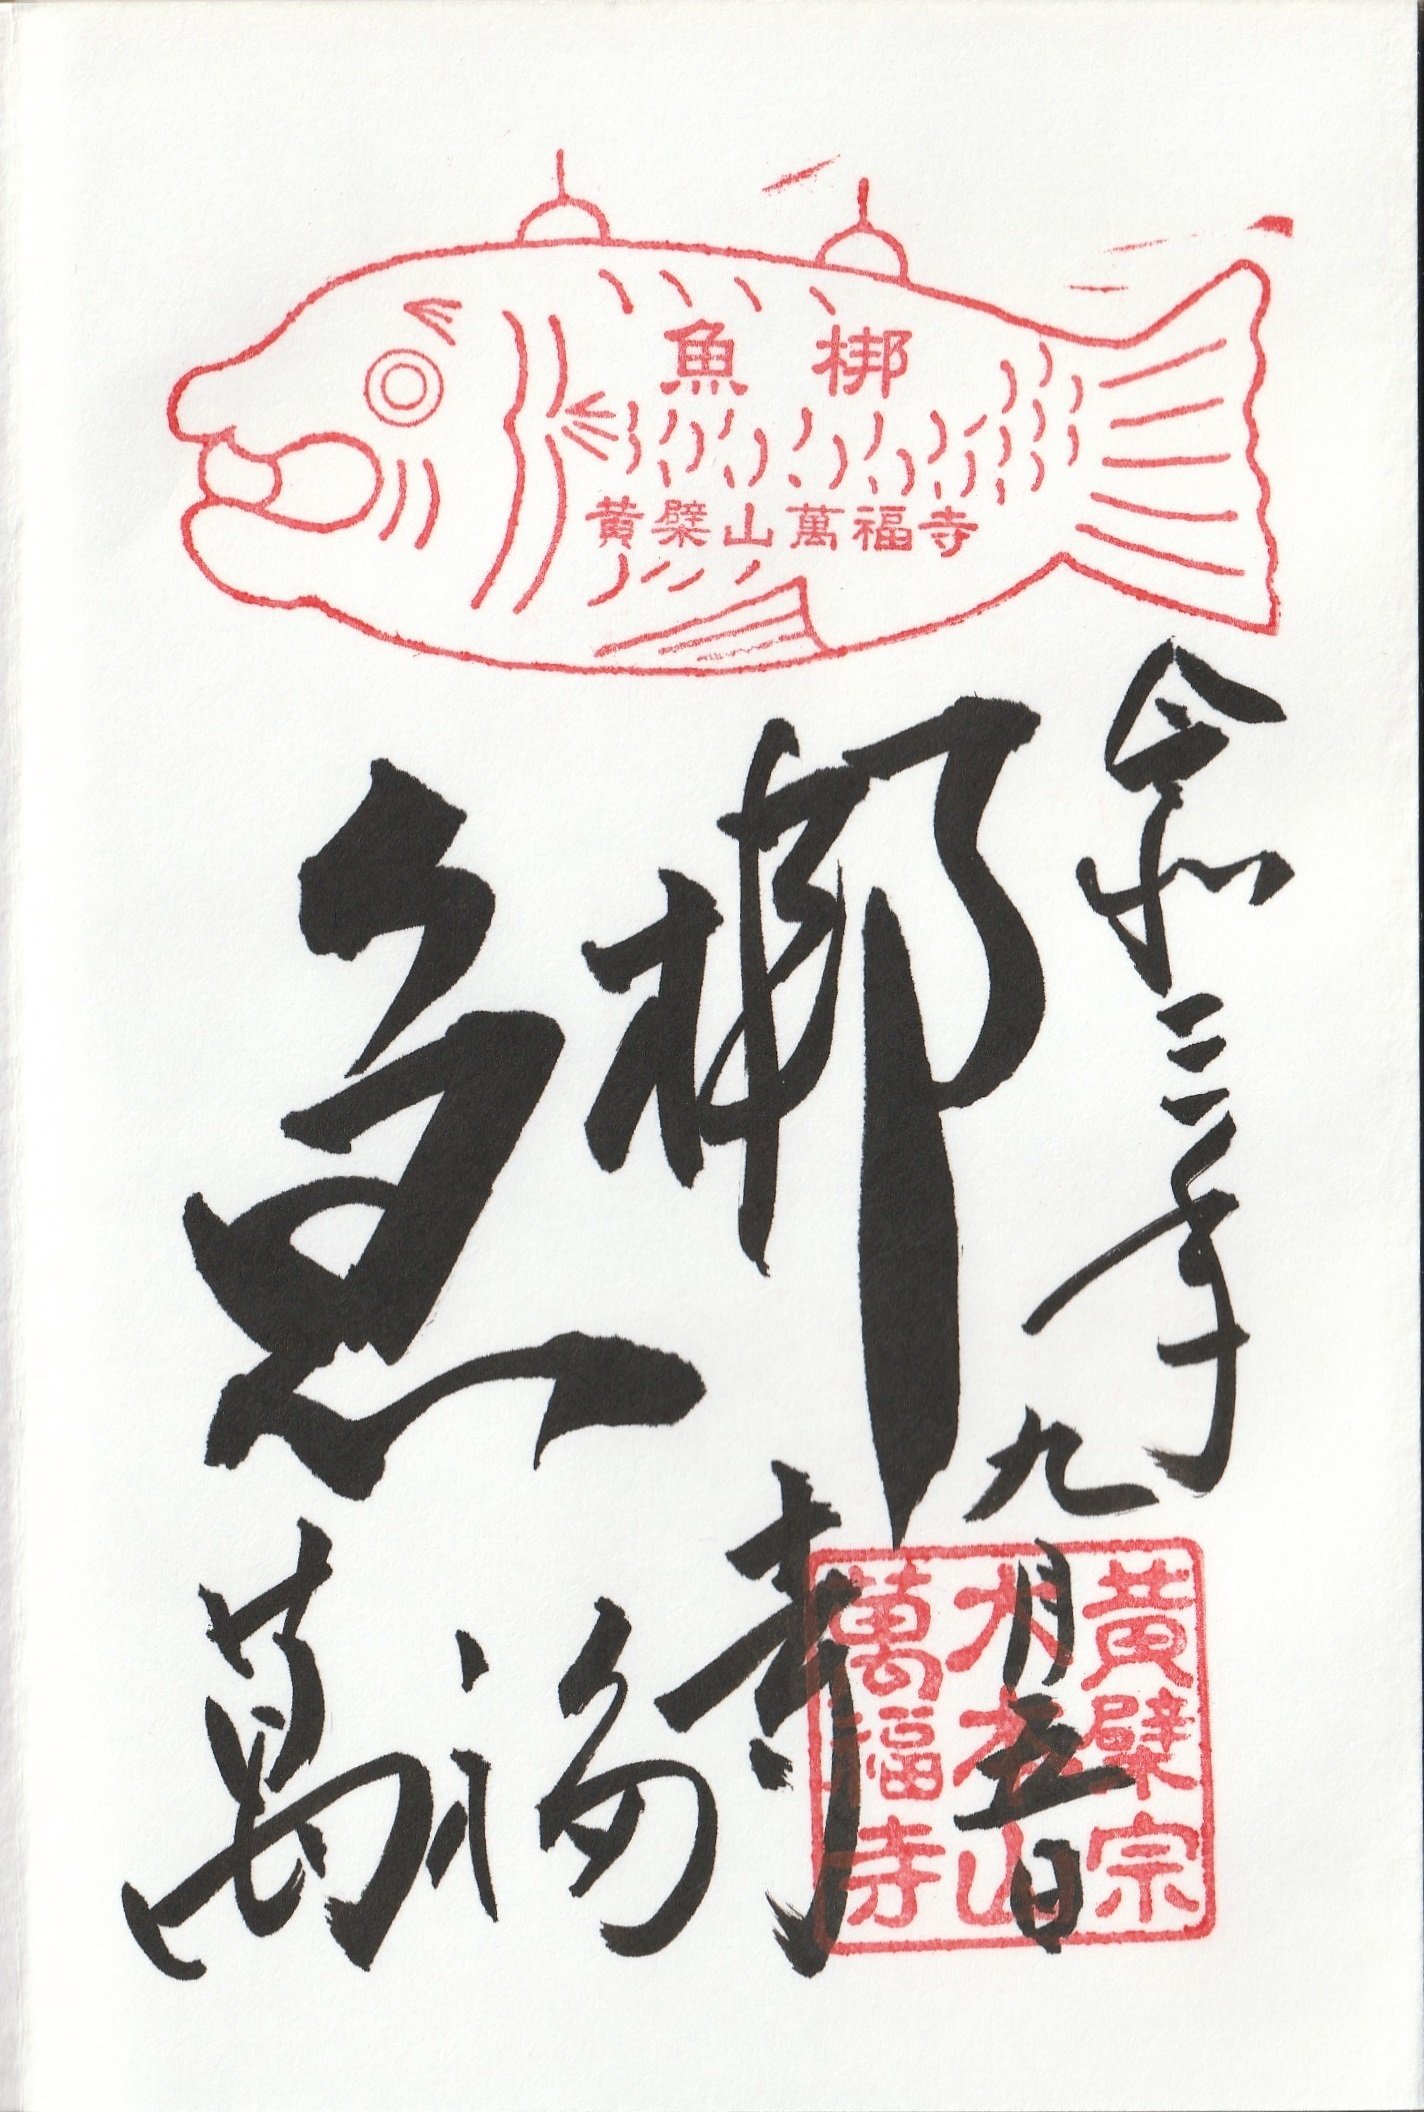 魚梆
黄檗山萬福寺
令和三年
九月五日
魚梆
萬福寺
黄檗宗
大本山
萬福寺